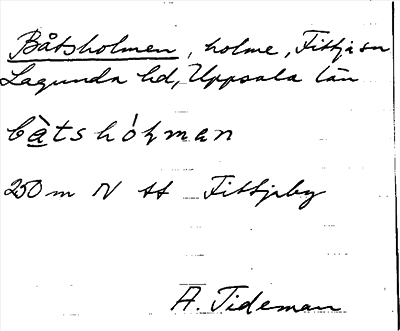 Båtsholmen, holme, Fittja sn
Lagunda hd, Uppsala län
bàtshóɫman
250 m N st Fittjeby
A. Tideman